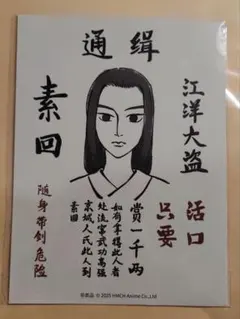 通缉
江洋大盗
只要
活口
素回
随身带剑危险
赏一千两
如有拿得此人者
处流宫武功高强
京城人氏此人到
素回
非卖品 © 2025 HMCH Anime Co., Ltd